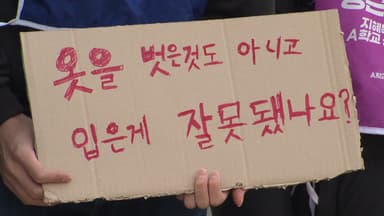 옷을 벗은것도 아니고
입은게 잘못됐나요?
지혜
A학교